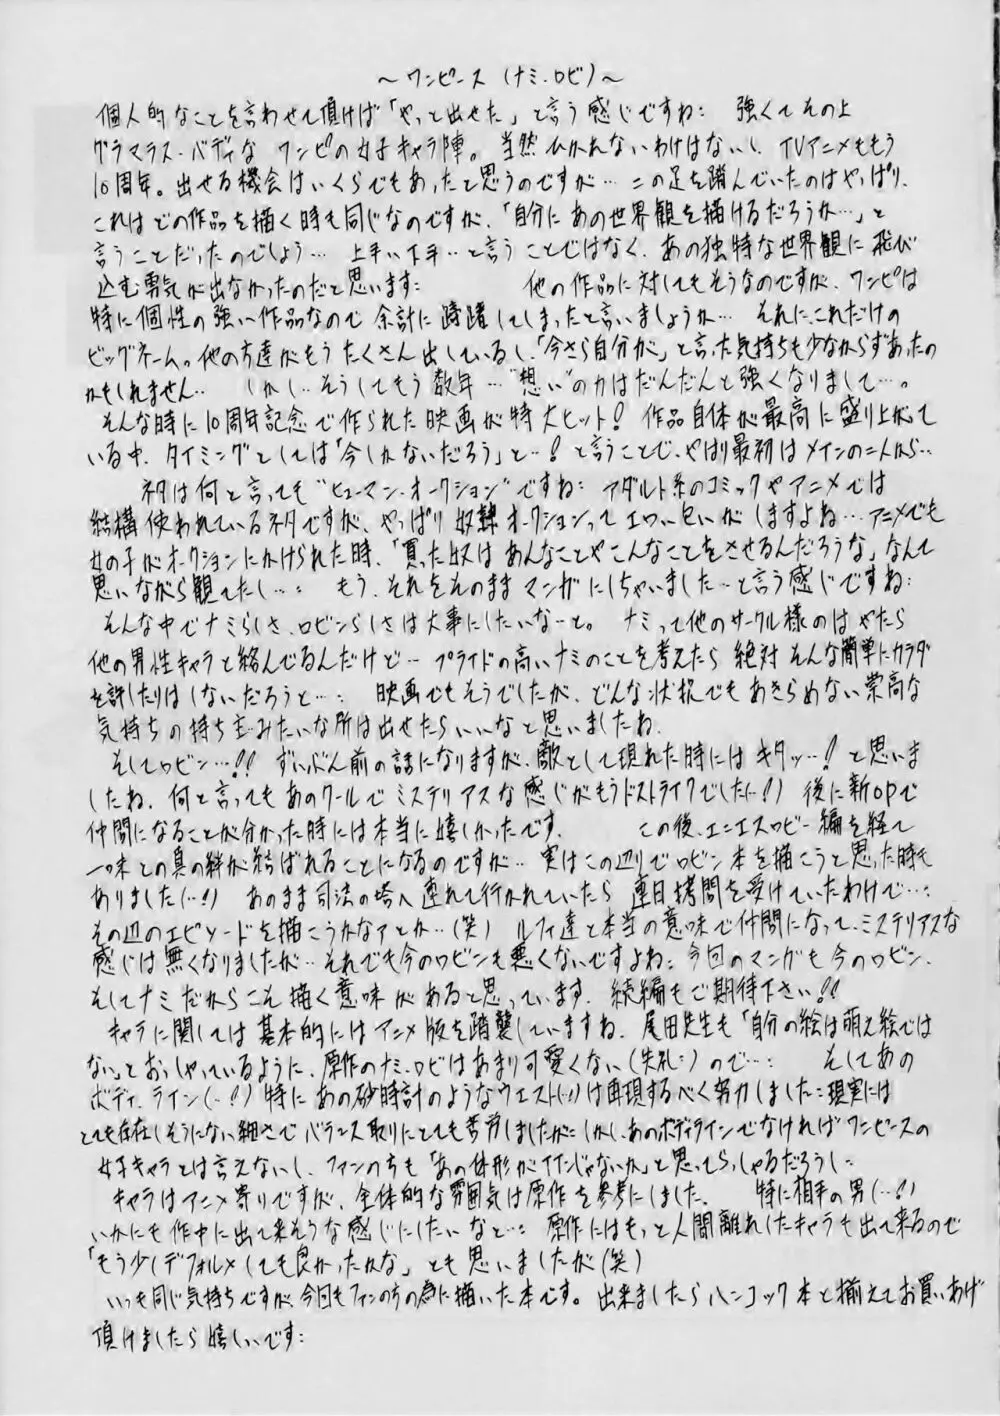 ～ワンピース（ナミ・ロビ）～
個人的なことを言わせて頂けば「やっと出せた」と言う感じですね： 強くてその上
グラマラス・バディな ワンピの女子キャラ陣。当然ひかれないわけはないし、TVアニメももう
10周年。出せる機会はいくらでもあったと思うのですが…二の足を踏んでいたのはやっぱり、
これはどの作品を描く時も同じなのですが、「自分にあの世界観を描けるだろうか…」と
言うことだったのでしょう… 上手い下手‥と言うことではなく、あの独特な世界観に飛び
込む勇気が出なかったのだと思います： 他の作品に対してもそうなのですが、ワンピは
特に個性の強い作品なので 余計に躊躇してしまったと言いましょうか… それに、これだけの
ビッグネーム。他の方達がもうたくさん出しているし、「今さら自分が」と言った気持ちも少なからずあったの
かもしれません‥ しかし‥そうしてもう数年…“想い”の力はだんだんと強くなりまして…。
そんな時に10周年記念で作られた映画が特大ヒット！ 作品自体が最高に盛り上がって
いる中、タイミングとしては「今しかないだろう」と…！と言うことで、やはり最初はメインの二人から‥
ネタは何と言っても“ヒューマン・オークション”ですね： アダルト系のコミックやアニメでは
結構使われているネタですが、やっぱり奴隷オークションってエロい匂いがしますよね…アニメでも
女の子がオークションにかけられた時、「買った奴は あんなことやこんなことをさせるんだろうな」なんて
思いながら観てたし…： もう、それをそのままマンガにしちゃいました…と言う感じですね：
そんな中でナミらしさ、ロビンらしさは大事にしたいなーと。 ナミって他のサークル様のはやたら
他の男性キャラと絡んでるんだけど… プライドの高いナミのことを考えたら 絶対そんな簡単にカラダ
を許したりはしないだろうと…： 映画でもそうでしたが、どんな状況でもあきらめない崇高な
気持ちの持ち主みたいな所は出せたらいいなと思いましたね。
そしてロビン…!! ずいぶん前の話になりますが、敵として現れた時にはキタッ…！と思いま
したね。何と言ってもあのクールでミステリアスな感じがもうドストライクでした(…!) 後に新OPで
仲間になることが分かった時には本当に嬉しかったです。 この後、エニエスロビー編を経て
一味との真の絆が結ばれることになるのですが‥ 実はこの辺りでロビン本を描こうと思った時も
ありました(…!) あのまま司法の塔へ連れて行かれていたら 連日拷問を受けていたわけで…：
その辺のエピソードを描こうかなァとか‥(笑) ルフィ達と本当の意味で仲間になって、ミステリアスな
感じは無くなりましたが…それでも今のロビンも悪くないですよね： 今回のマンガも今のロビン、
そしてナミだからこそ描く意味があると思っています。続編もご期待下さい!!
キャラに関しては基本的にはアニメ版を踏襲していますね。尾田先生も「自分の絵は萌え絵では
ない」とおっしゃっているように、原作のナミ・ロビはあまり可愛くない(失礼：)ので…： そしてあの
ボディ・ライン(‥!) 特にあの砂時計のようなウエスト(‥)は再現するべく努力しました：現実には
とても存在しそうにない細さでバランス取りにとても苦労しましたが：しかし、あのボディラインでなければワンピースの
女子キャラとは言えないし、ファンの方も「あの体形がイイんじゃないか」と思ってらっしゃるだろうし：
キャラはアニメ寄りですが、全体的な雰囲気は原作を参考にしました。 特に相手の男(…!)
いかにも作中に出て来そうな感じにしたいなと…： 原作にはもっと人間離れしたキャラも出て来るので
「もう少しデフォルメしても良かったかな」とも思いましたが(笑)
いつも同じ気持ちですが、今回もファンの方の為に描いた本です。出来ましたらハンコック本と揃えてお買いあげ
頂けましたら嬉しいです：